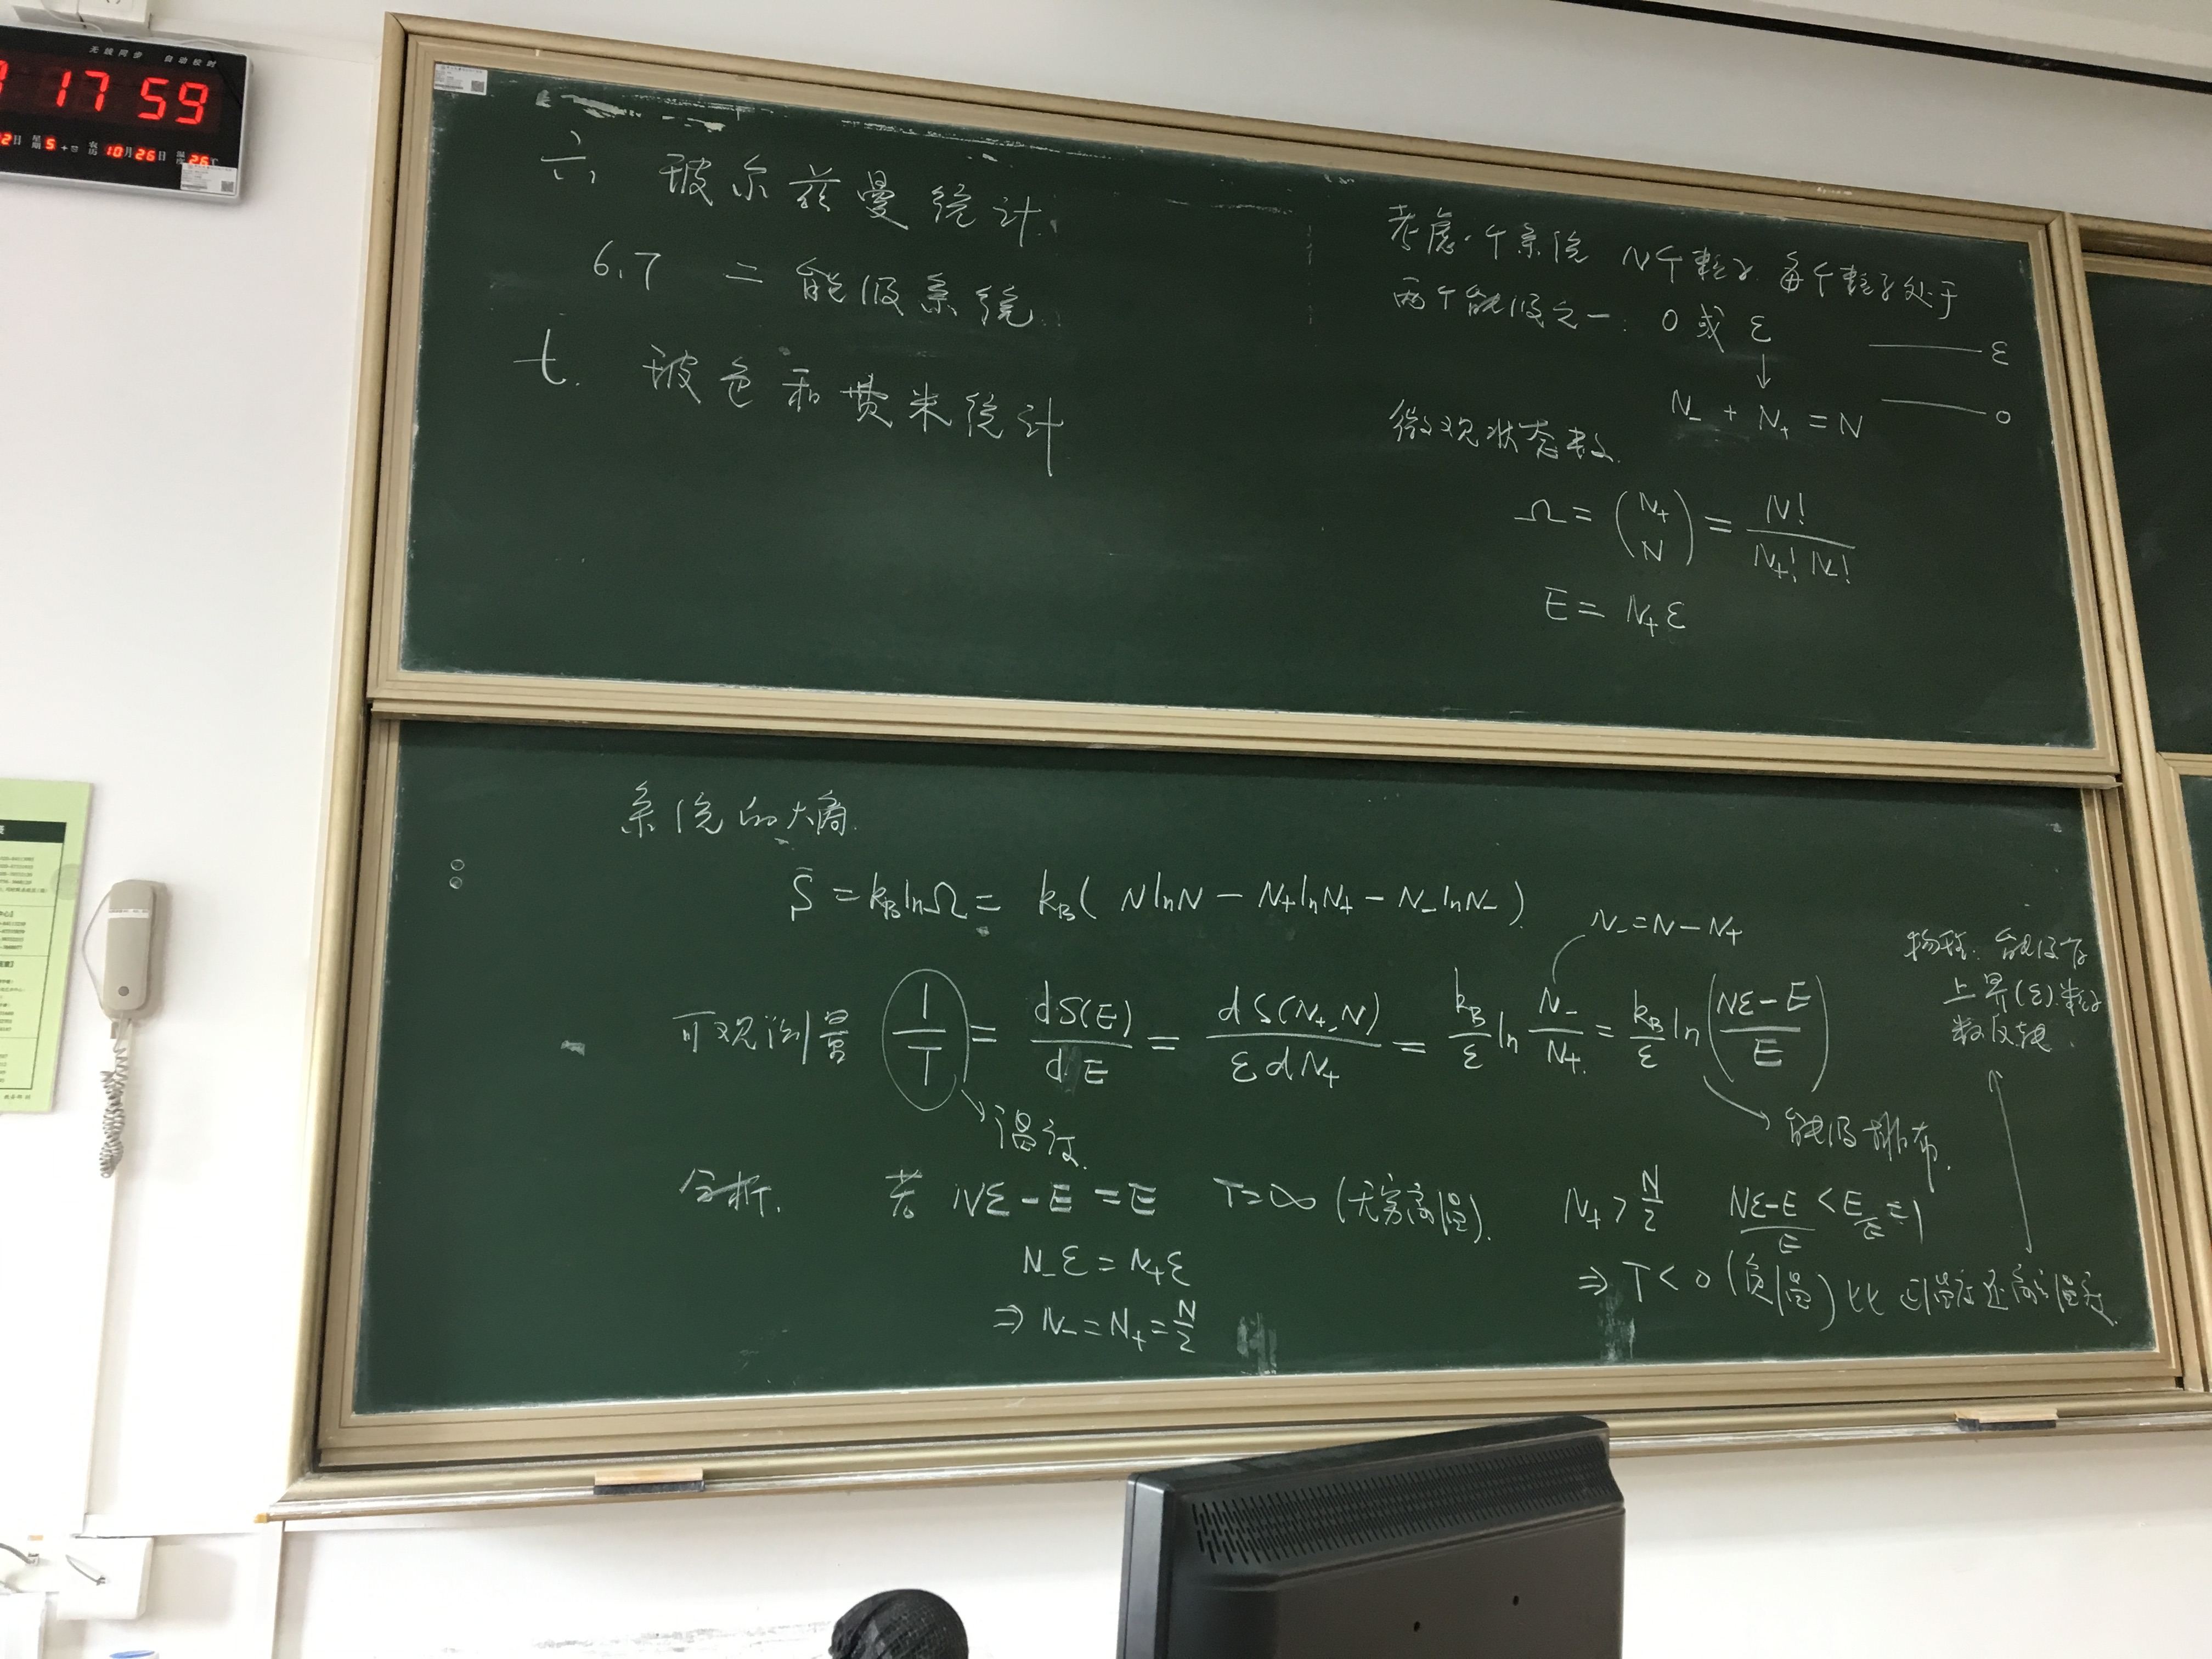 无线同步 自动校时
17 59
2日 星期 5 农历 10月 26日 温度 26℃
六、玻尔兹曼统计
6.7 二能级系统
七. 玻色和费米统计
考虑一个系统 N个粒子. 每个粒子处于
两个能级之一: 0 或 ε
ε
↓
N₋ + N₊ = N
0
微观状态数.
Ω = (N₊ N) = N!/(N₊! N₋!)
E = N₊ε
系统的大熵.
S = k_B lnΩ = k_B( N lnN − N₊lnN₊ − N₋lnN₋ )
N₋ = N − N₊
可观测量 1/T = dS(E)/dE = dS(N₊,N)/(ε dN₊) = k_B/ε ln N₋/N₊ = k_B/ε ln((Nε−E)/E)
→ 温度.
→ 能级排布.
能级有
上界(ε).粒子
数反转.
分析. 若 Nε − E = E T=∞ (无穷高温).
N₋ε = N₊ε
⇒ N₋ = N₊ = N/2
N₊ > N/2 (Nε−E)/E < E/E = 1
⇒ T < 0 (负温) 比正温度还高的温度.